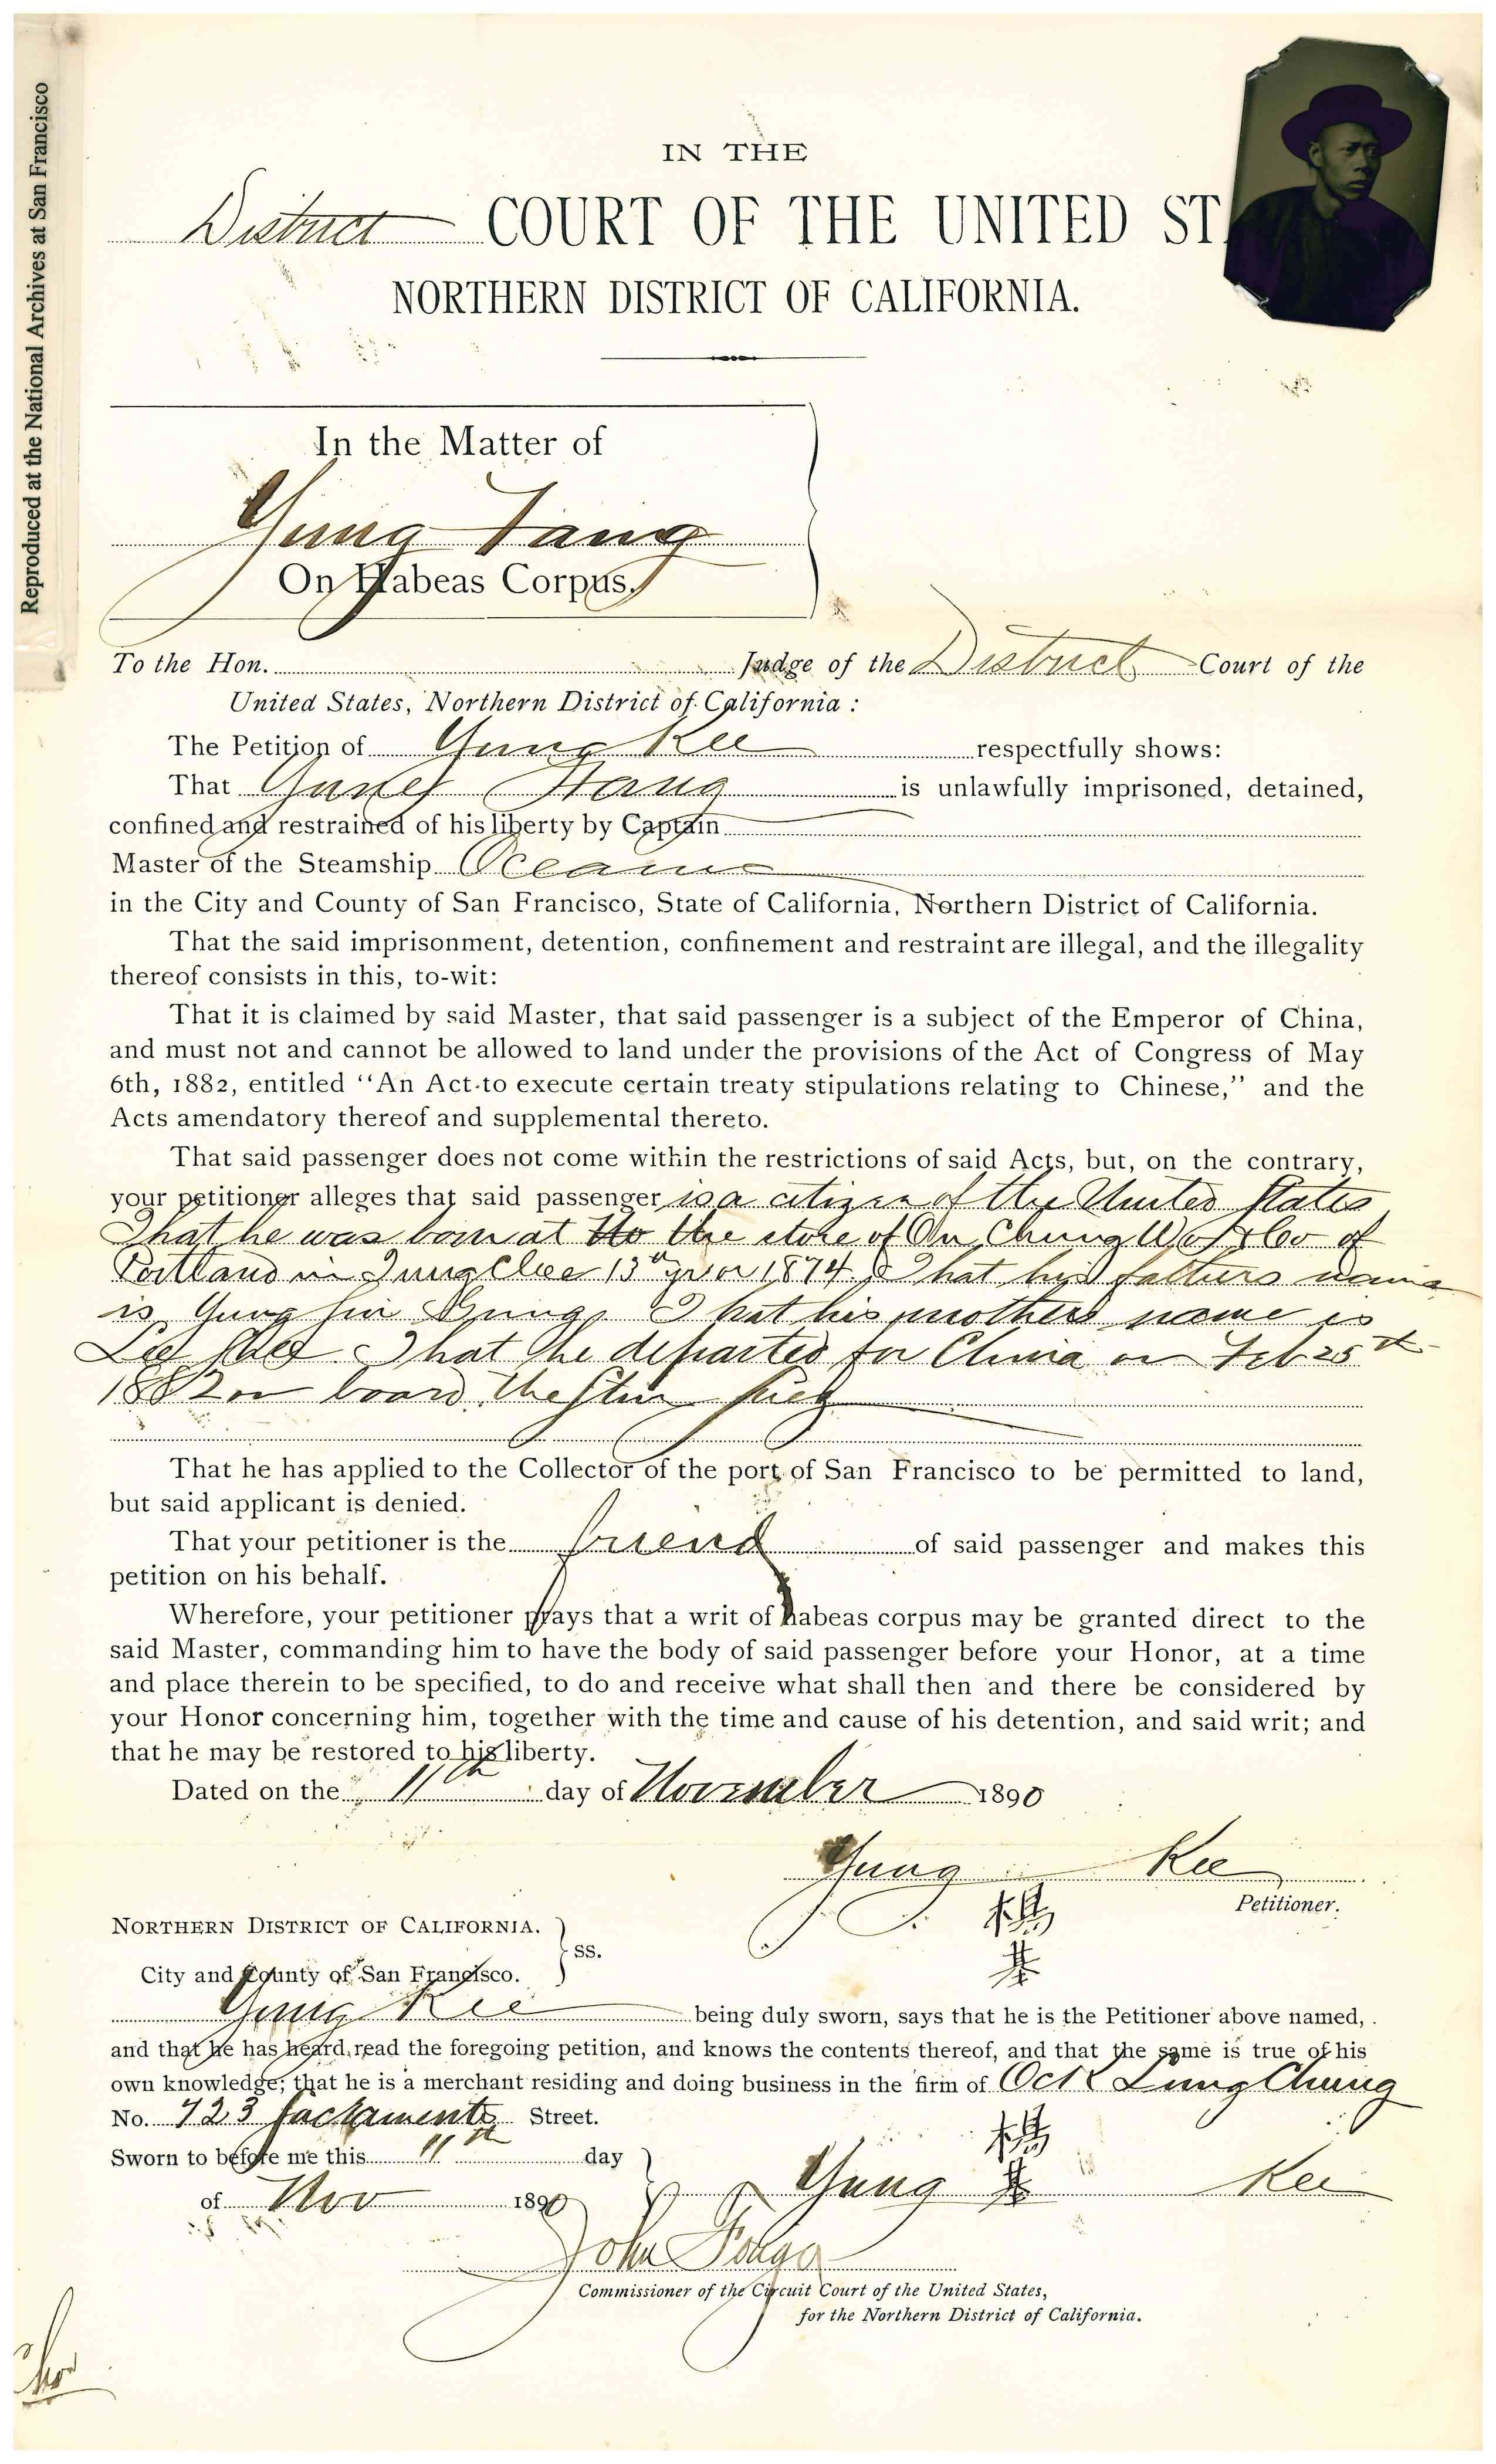 Reproduced at the National Archives at San Francisco
IN THE
District COURT OF THE UNITED ST
NORTHERN DISTRICT OF CALIFORNIA.
In the Matter of
Yung Fang
On Habeas Corpus.
To the Hon. Judge of the District Court of the
United States, Northern District of California :
The Petition of Yung Kee respectfully shows:
That Yung is unlawfully imprisoned, detained,
confined and restrained of his liberty by Captain
Master of the Steamship Oceanic
in the City and County of San Francisco, State of California, Northern District of California.
That the said imprisonment, detention, confinement and restraint are illegal, and the illegality
thereof consists in this, to-wit:
That it is claimed by said Master, that said passenger is a subject of the Emperor of China,
and must not and cannot be allowed to land under the provisions of the Act of Congress of May
6th, 1882, entitled “An Act to execute certain treaty stipulations relating to Chinese,” and the
Acts amendatory thereof and supplemental thereto.
That said passenger does not come within the restrictions of said Acts, but, on the contrary,
your petitioner alleges that said passenger is a citizen of the United States
That he was born at the store of On Chung Wo & Co of
Portland in 13th year 1874. That his fathers name
is Yung That his mothers name is
Lee That he departed for China on Feb 25th
1882 on board the Stm
That he has applied to the Collector of the port of San Francisco to be permitted to land,
but said applicant is denied.
That your petitioner is the friend of said passenger and makes this
petition on his behalf.
Wherefore, your petitioner prays that a writ of habeas corpus may be granted direct to the
said Master, commanding him to have the body of said passenger before your Honor, at a time
and place therein to be specified, to do and receive what shall then and there be considered by
your Honor concerning him, together with the time and cause of his detention, and said writ; and
that he may be restored to his liberty.
Dated on the 11th day of November 1890
Yung Kee
楊
基
Petitioner.
NORTHERN DISTRICT OF CALIFORNIA.
City and County of San Francisco. } ss.
Yung Kee being duly sworn, says that he is the Petitioner above named,
and that he has heard read the foregoing petition, and knows the contents thereof, and that the same is true of his
own knowledge; that he is a merchant residing and doing business in the firm of Lung Chung
No. 723 Sacramento Street.
Sworn to before me this 11th day
of Nov 1890
楊
Yung 基 Kee
John
Commissioner of the Circuit Court of the United States,
for the Northern District of California.